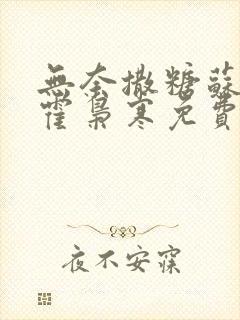 無奈撒糖蘇
霍梟寒免費
夜不安寐